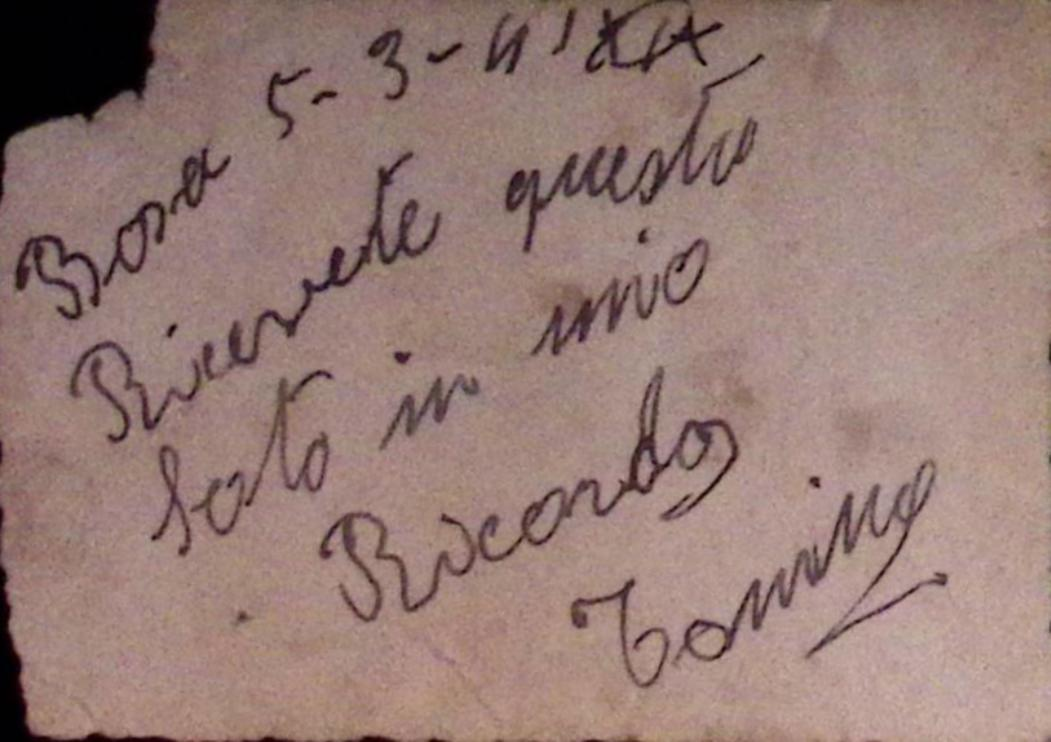 Bosa 5-3-41 XIX
Ricevete questa
foto in mio
Ricordo
Tonino